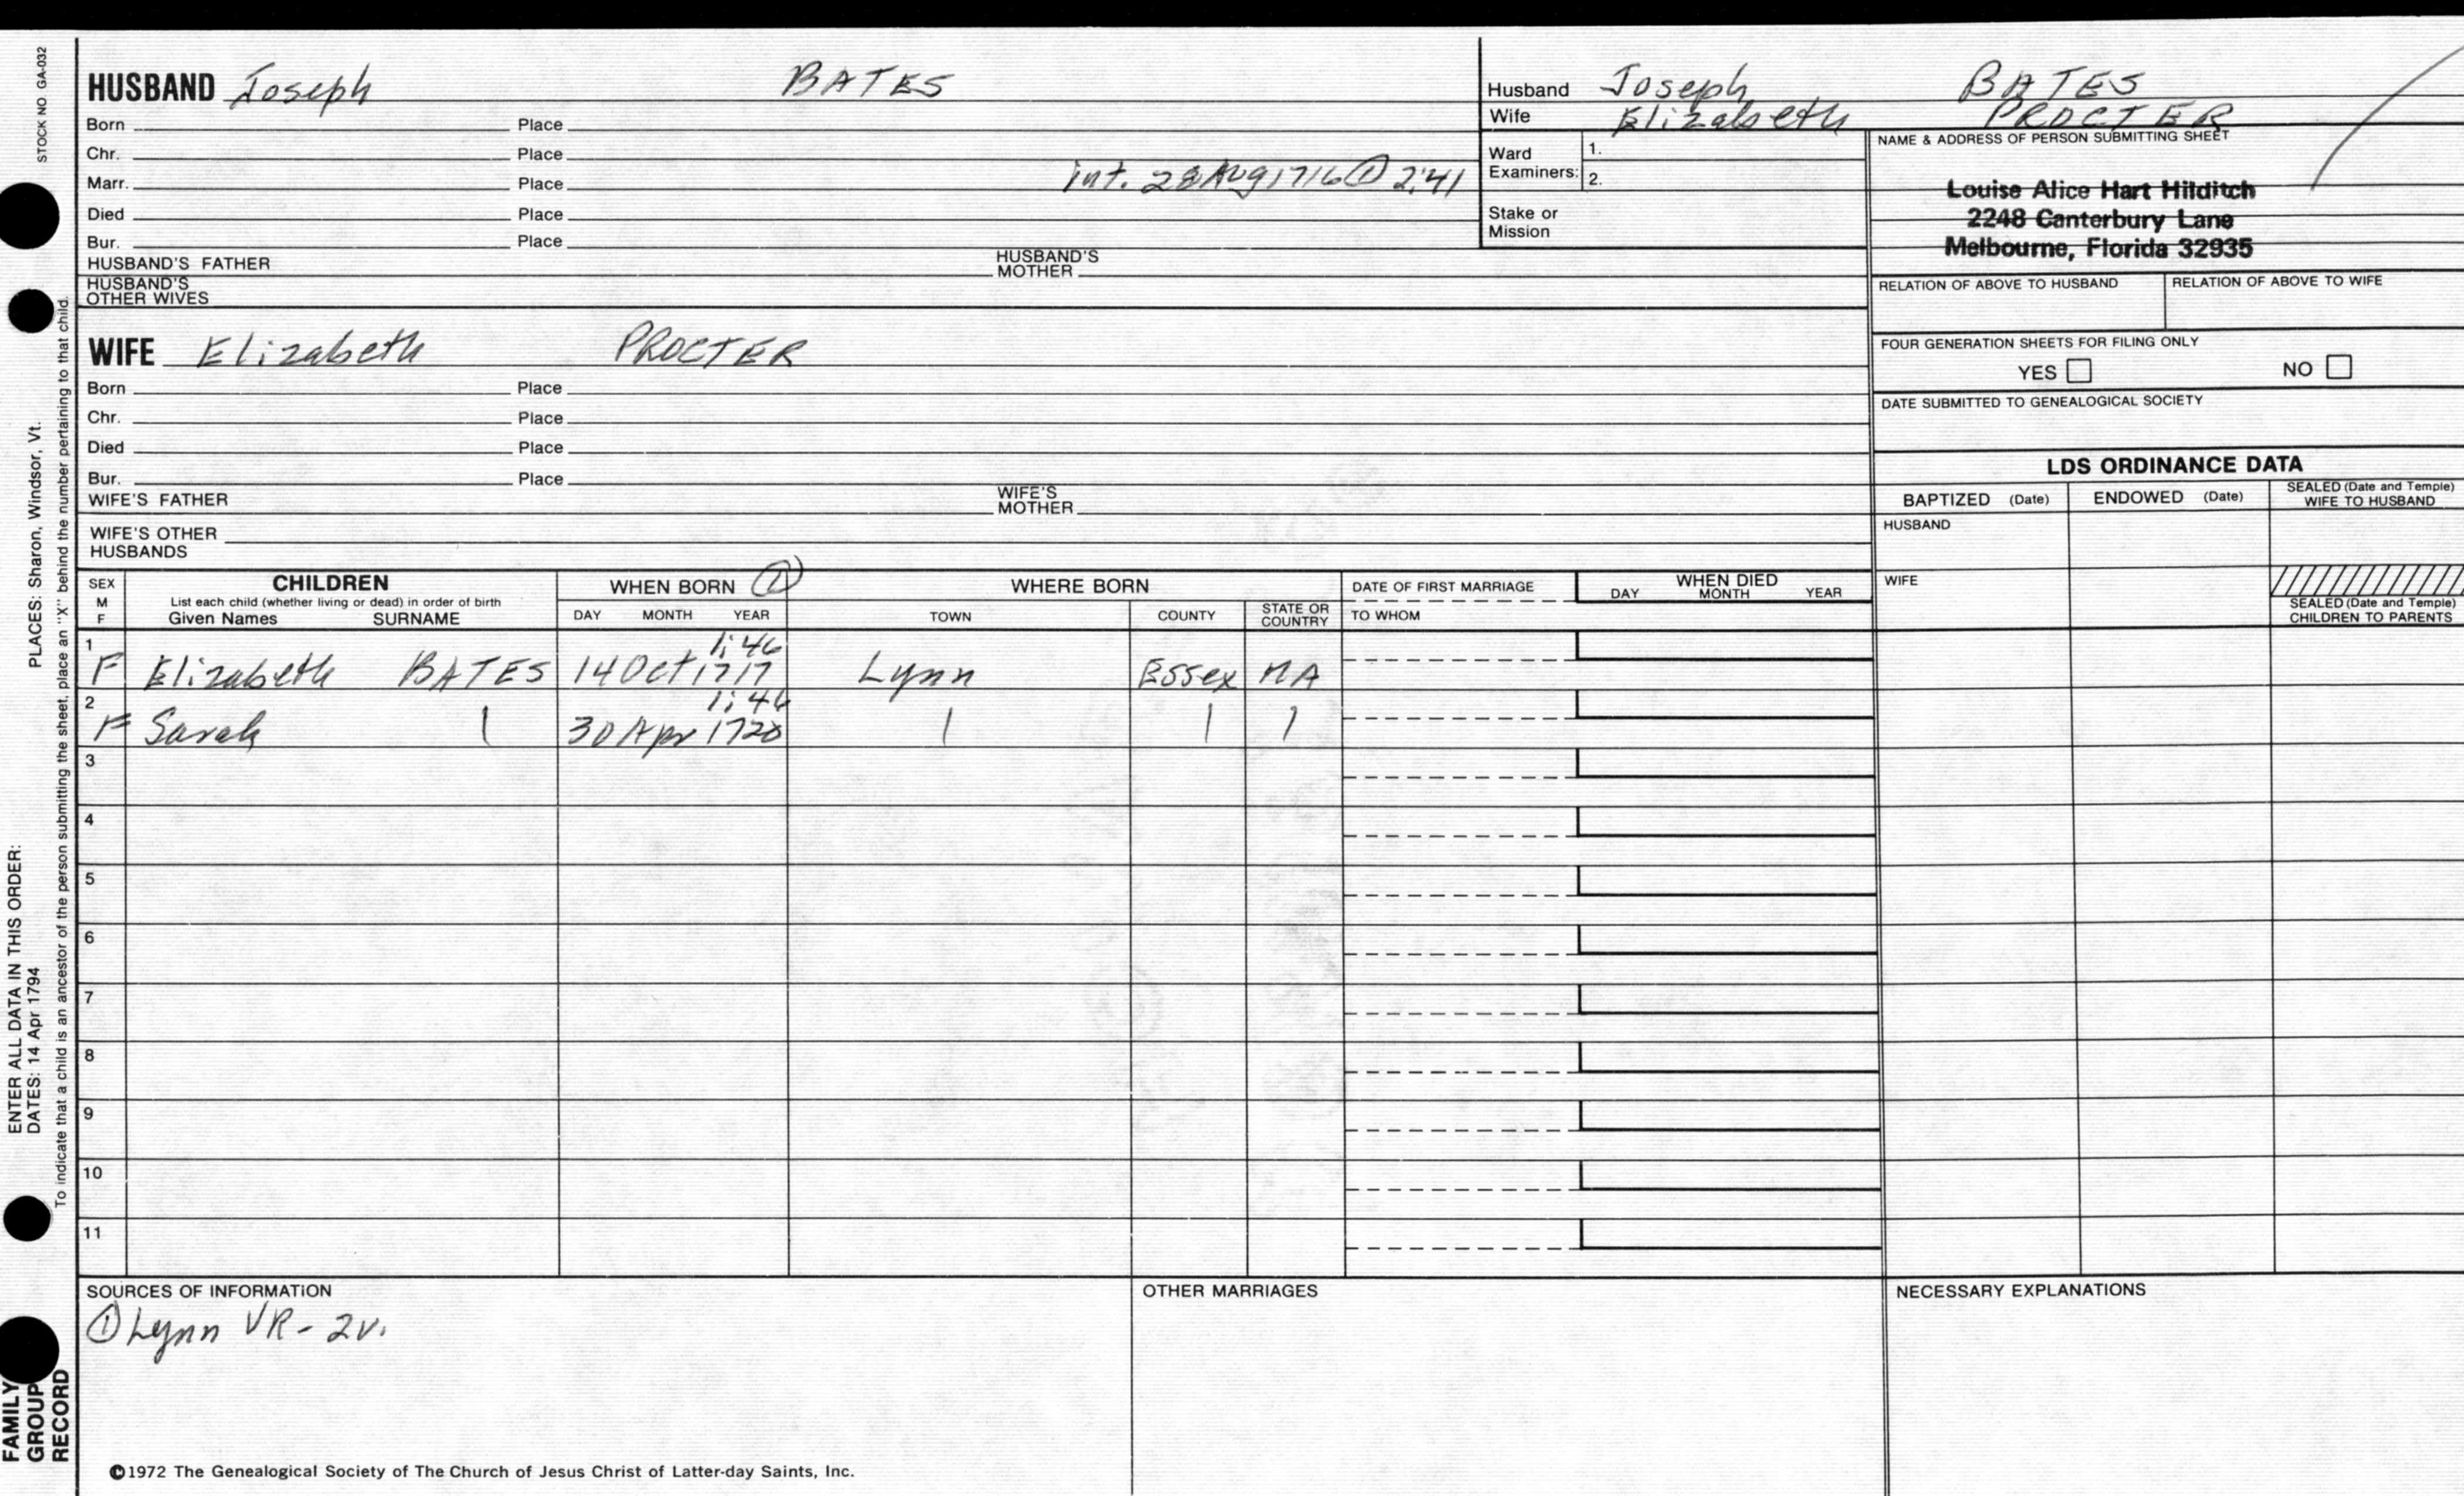 STOCK NO GA-032
HUSBAND Joseph BATES
Born Place
Chr. Place
Marr. Place int. 28 Aug 1716 ① 2:41
Died Place
Bur. Place
HUSBAND'S FATHER HUSBAND'S MOTHER
HUSBAND'S OTHER WIVES
Husband Joseph BATES
Wife Elizabeth PROCTER
Ward Examiners: 1. 2.
Stake or Mission
NAME & ADDRESS OF PERSON SUBMITTING SHEET
Louise Alice Hart Hilditch
2248 Canterbury Lane
Melbourne, Florida 32935
RELATION OF ABOVE TO HUSBAND RELATION OF ABOVE TO WIFE
FOUR GENERATION SHEETS FOR FILING ONLY
YES NO
DATE SUBMITTED TO GENEALOGICAL SOCIETY
WIFE Elizabeth PROCTER
Born Place
Chr. Place
Died Place
Bur. Place
WIFE'S FATHER WIFE'S MOTHER
WIFE'S OTHER HUSBANDS
LDS ORDINANCE DATA
BAPTIZED (Date) ENDOWED (Date) SEALED (Date and Temple) WIFE TO HUSBAND
HUSBAND
WIFE
SEALED (Date and Temple) CHILDREN TO PARENTS
SEX M F
CHILDREN
List each child (whether living or dead) in order of birth
Given Names SURNAME
WHEN BORN ①
DAY MONTH YEAR
WHERE BORN
TOWN COUNTY STATE OR COUNTRY
DATE OF FIRST MARRIAGE
TO WHOM
WHEN DIED
DAY MONTH YEAR
1 1:46
F Elizabeth BATES 14 Oct 1717 Lynn Essex MA
2 1:46
F Sarah | 30 Apr 1720 | | |
3
4
5
6
7
8
9
10
11
SOURCES OF INFORMATION
① Lynn VR - 2v.
OTHER MARRIAGES
NECESSARY EXPLANATIONS
©1972 The Genealogical Society of The Church of Jesus Christ of Latter-day Saints, Inc.
FAMILY GROUP RECORD
ENTER ALL DATA IN THIS ORDER:
DATES: 14 Apr 1794
PLACES: Sharon, Windsor, Vt.
To indicate that a child is an ancestor of the person submitting the sheet, place an "X" behind the number pertaining to that child.